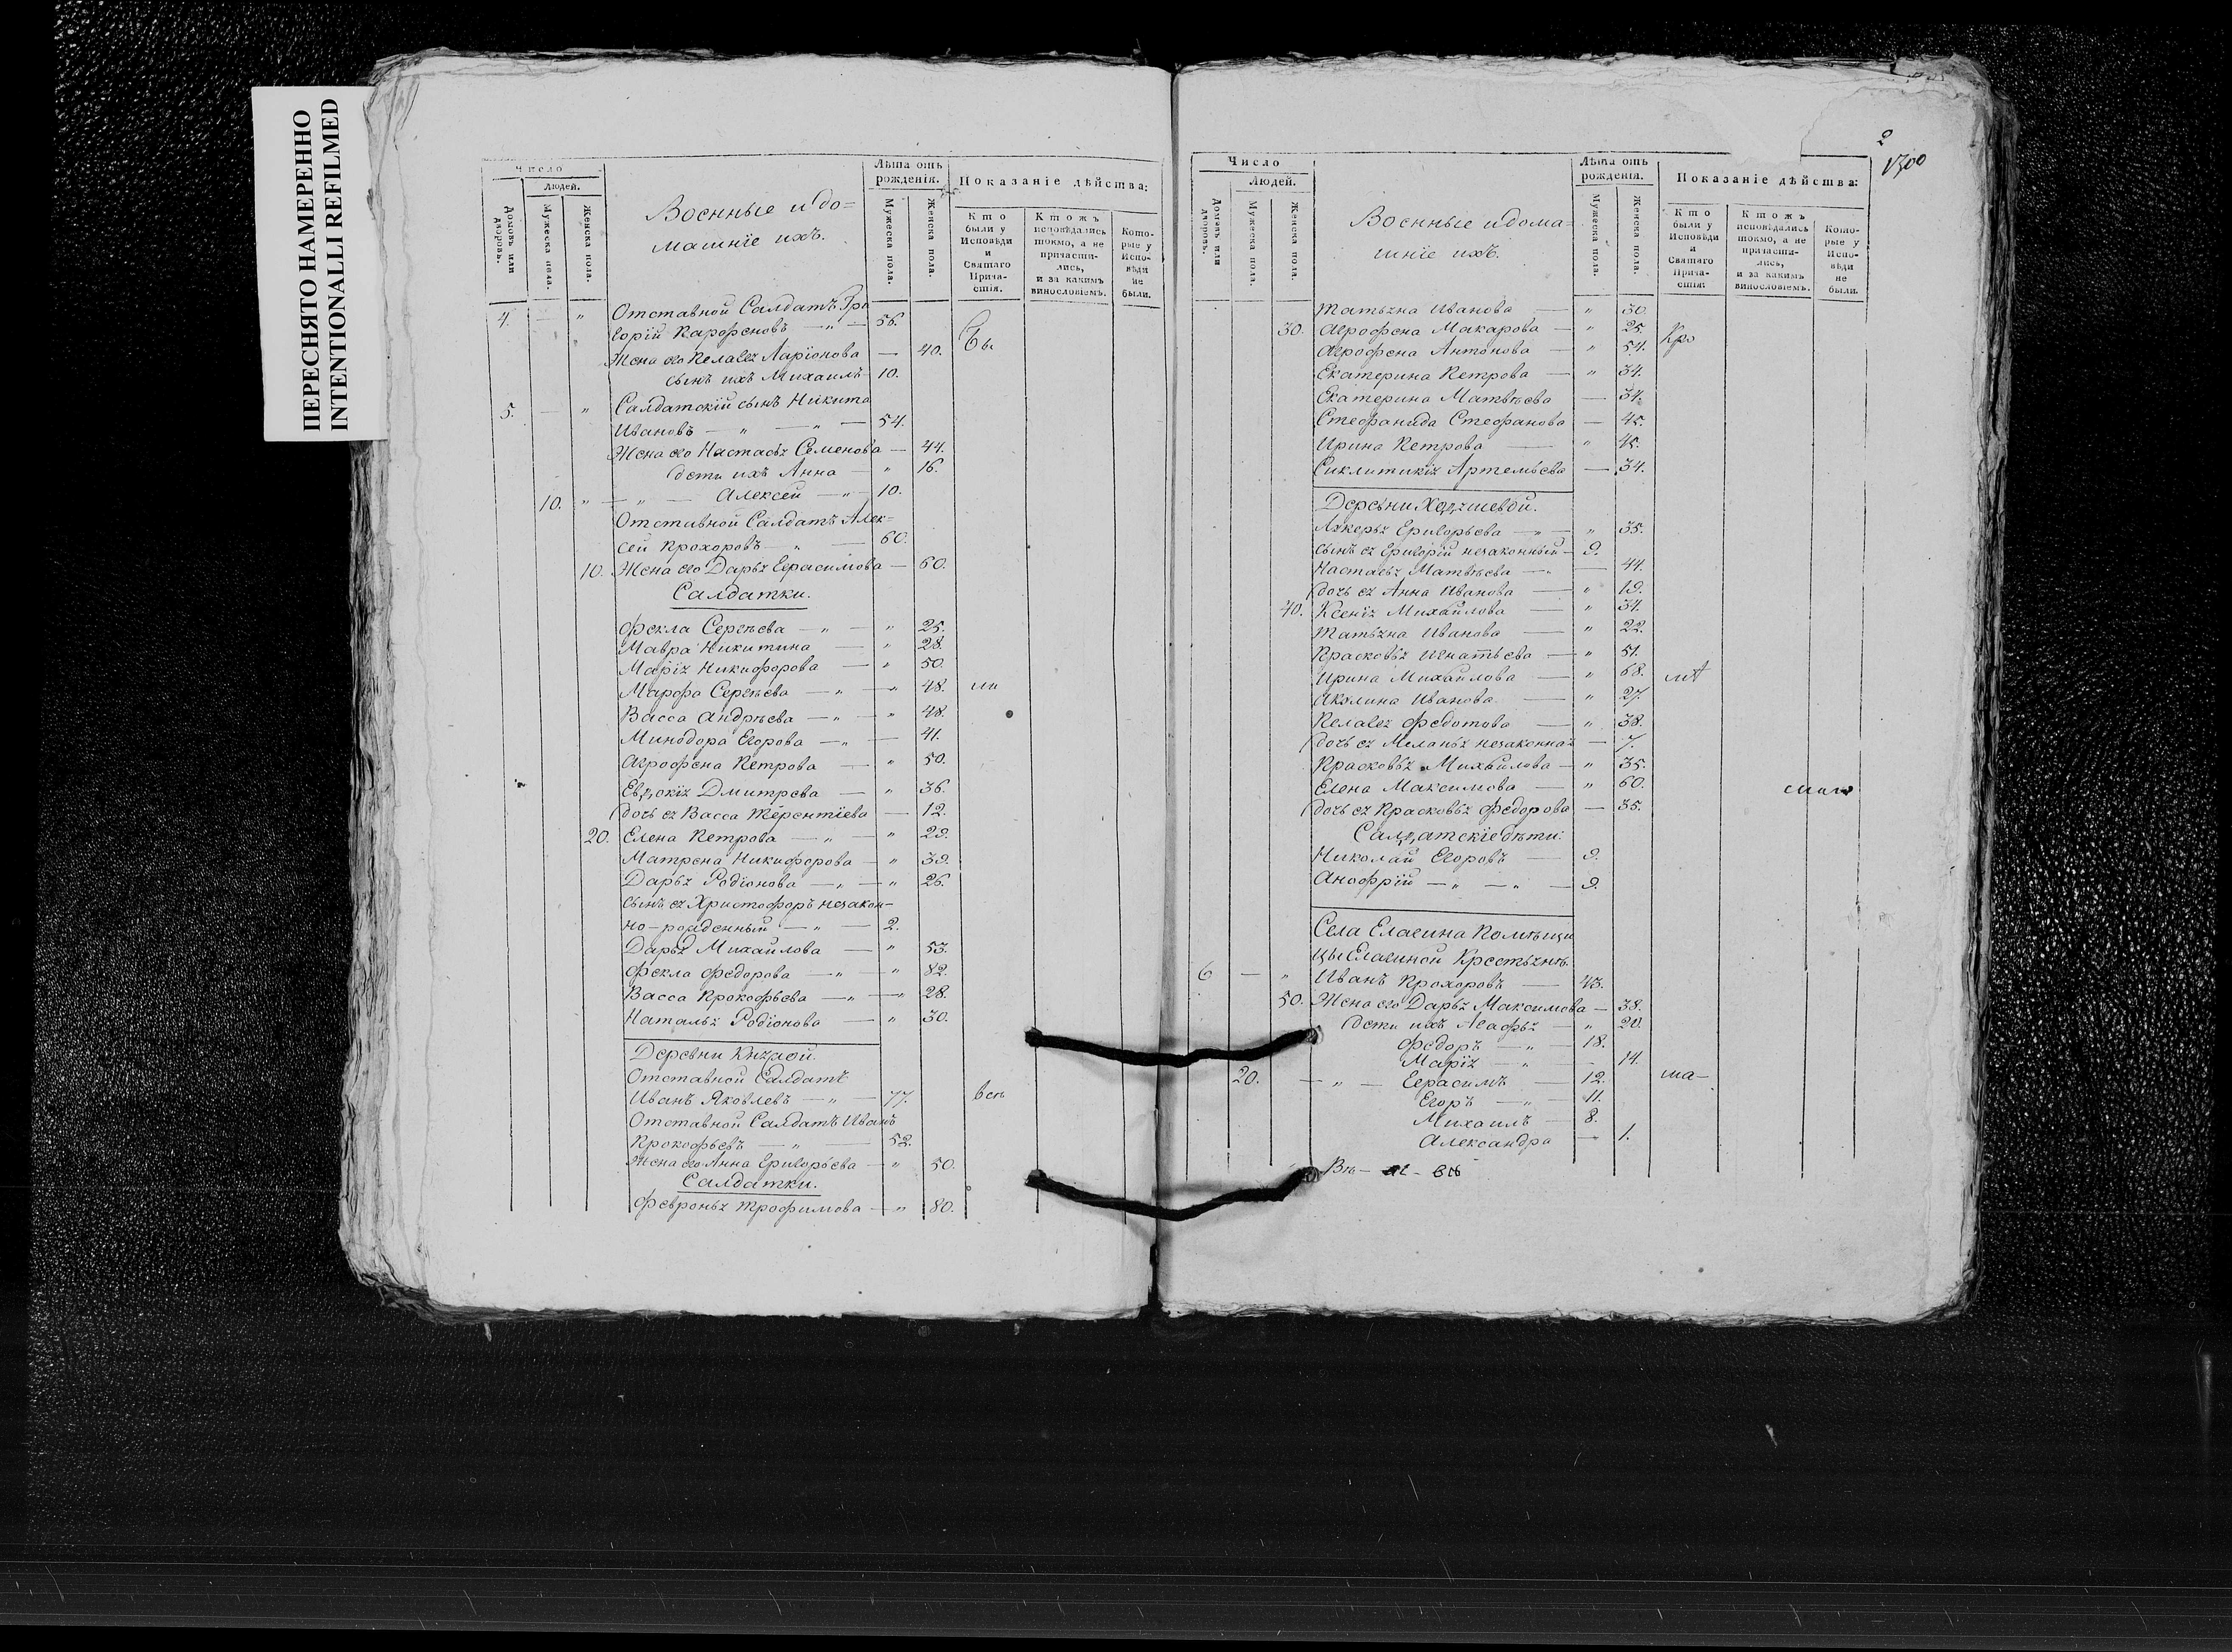 ПЕРЕСНЯТО НАМЕРЕННО
INTENTIONALLI REFILMED
Число
Людей.
Домовъ или дворовъ.
Мужеска пола.
Женска пола.
Военные и до=
машнїе ихъ.
Лѣта отъ рожденїя.
Мужеска пола.
Женска пола.
Показанїе дѣйства:
Кто были у Исповѣди и Святаго Причастїя.
Ктожъ исповѣдались токмо, а не причастились, и за какимъ винословїемъ.
Которые у Исповѣди не были.
4. — " Отставной Салдатъ Гри
горїй Парфеновъ — " — 56.
Бы
Жена его Пелагея Ларїонова — 40.
сынъ ихъ Михаилъ — 10.
5. — " Салдатскїй сынъ Никита
Ивановъ — " — " — 54.
Жена его Настасья Семенова — 44.
дети ихъ Анна — " 16.
10. " — " — Алексей — " — 10.
Отставной Салдатъ Алек=
сей Прохоровъ — " — 60.
10. Жена его Дарья Герасимова — 60.
Салдатки.
Фекла Сергѣева — " — " 25.
Мавра Никитина — " 28.
Марїя Никифорова — " 50.
Марфа Сергѣева — " — " 48. ли
Васса Андрѣева — " — " 48.
Минодора Егорова — " — 41.
Агрофена Петрова — " 50.
Евдокїя Дмитрева — " 36.
дочь ея Васса Терентїева — 12.
20. Елена Петрова — " — " 29.
Матрена Никифорова — " 39.
Дарья Родїонова — " — " 26.
сынъ ея Христофоръ незакон-
но-рожденный — " — 2.
Дарья Михайлова — " 53.
Фекла Федорова — " — " 82.
Васса Прокофьева — " — " 28.
Наталья Родїонова — " 30.
Деревни
Отставной Салдатъ
Иванъ Яковлевъ — " — 77. всѣ
Отставной Салдатъ Иванъ
Прокофьевъ — " — 52.
Жена его Анна Григорьева — " 50.
Салдатки.
Февронья Трофимова — " 80.
2
1300
Число
Людей.
Домовъ или дворовъ.
Мужеска пола.
Женска пола.
Военные и дома=
шнїе ихъ.
Лѣта отъ рожденїя.
Мужеска пола.
Женска пола.
Показанїе дѣйства:
Кто были у Исповѣди и Святаго Причастїя:
Ктожъ исповѣдались токмо, а не причастились, и за какимъ винословїемъ.
Которые у Исповѣди не были.
Татьяна Иванова — " 30.
30. Агрофена Макарова — " 25.
Кро
Агрофена Антонова — " 54.
Екатерина Петрова — " 34.
Екатерина Матвѣева — 34.
Стефанида Стефанова — 45.
Ирина Петрова — " 45.
Сиклитикїя Артемьева — 34.
Деревни
Лукерья Григорьева — " — " 35.
сынъ ея Григорїй незаконный — 9.
Настасья Матвѣева — " — 44.
дочь ея Анна Иванова — " 19.
40. Ксенїя Михайлова — " 34.
Татьяна Иванова — " 22.
Прасковья Игнатьева — " 51.
Ирина Михайлова — " 68.
Акулина Иванова — " 27.
Пелагея Федотова — " 38.
дочь ея Меланья незаконная — 7.
Прасковья Михайлова — " 35.
Елена Максимова — " 60.
дочь ея Прасковья Федорова — 35.
Салдатскїе дѣти:
Николай Егоровъ — 9.
Анофрїй — " — " — 9.
Села Елагина Помѣщи
цы Елагиной Крестьянѣ.
6 — " Иванъ Прохоровъ — 43.
50. Жена его Дарья Максимова — 38.
дети ихъ Агафья — " 20.
Федоръ — " — 18.
Марїя — " — 14.
20. — " — Герасимъ — 12. ма-
Егоръ — " — 11.
Михаилъ — 8.
Александра — 1.